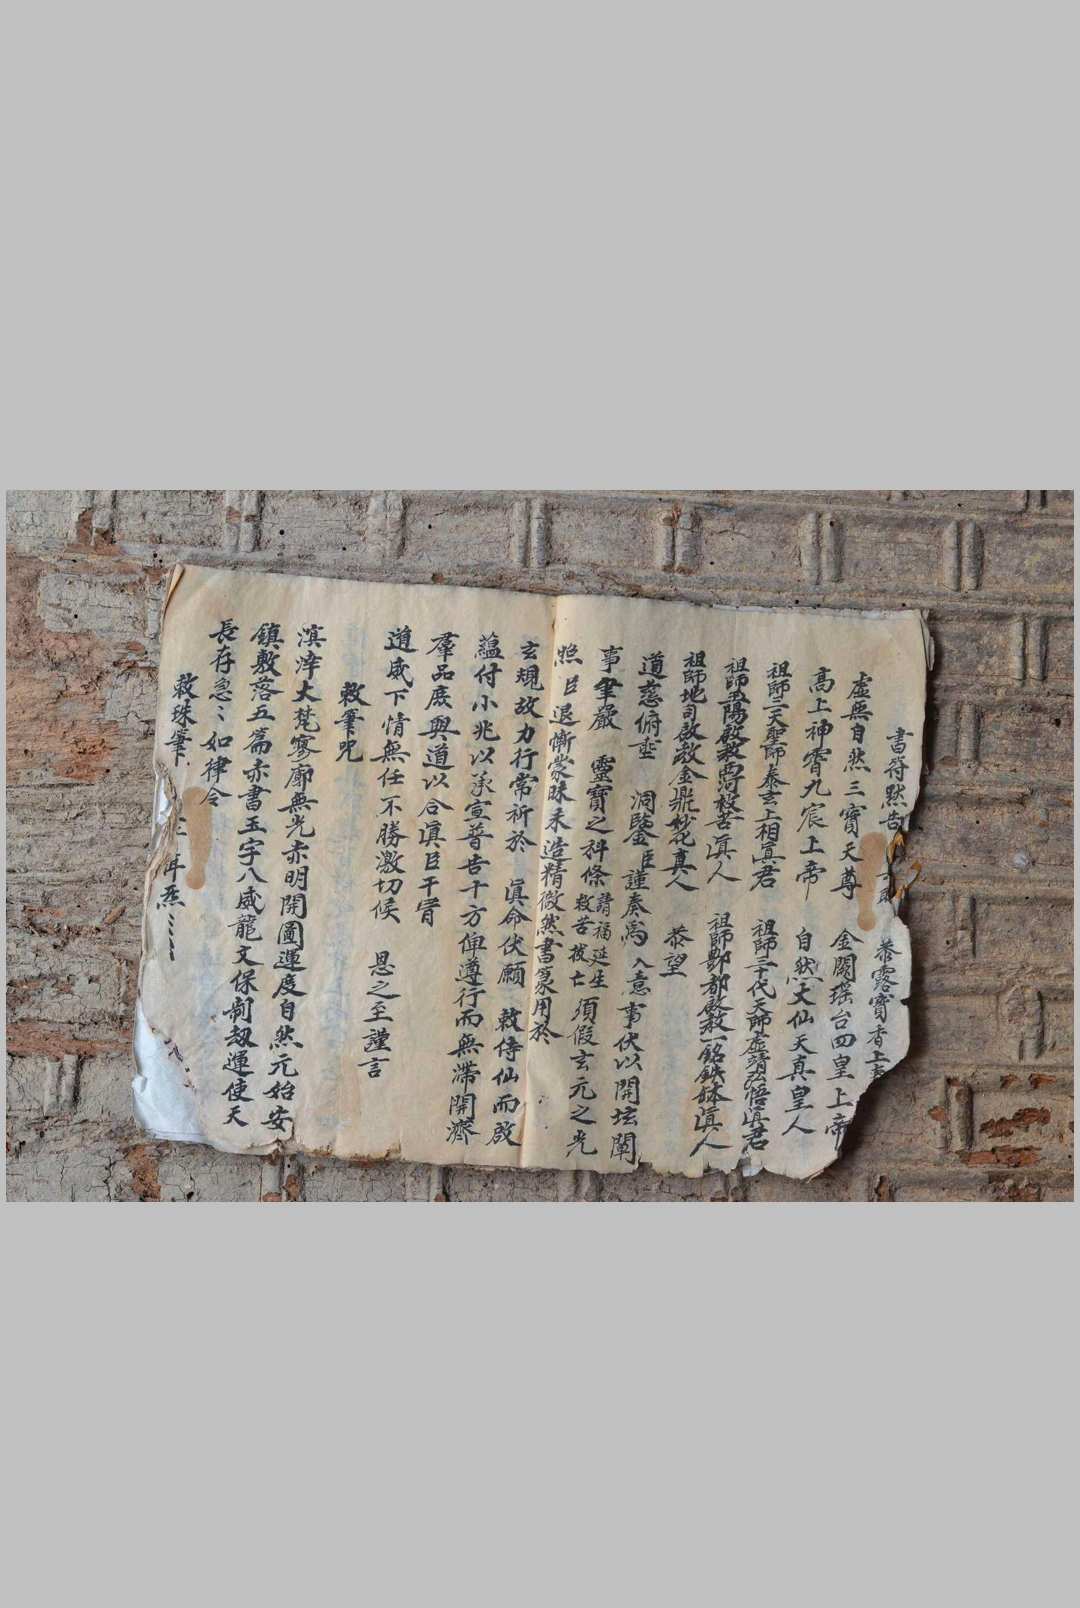 書符默告 恭露寶香上
虛無自然三寶天尊 金闕瑤台四皇上帝
高上神霄九宸上帝 自然大仙天真皇人
祖師三天聖師泰玄上相眞君 祖師三十代天師虛靖弘悟眞君
祖師 陽啟教 救苦眞人 祖師酆都啟教 銘鉄 眞人
祖師地司啟教金鼎妙花真人 恭望
道慈俯垂 洞鑒臣謹奏爲 入意事伏以開坛闡
事聿嚴 靈寶之科條 請福延生 救苦拔亡 須假玄元之光
照臣退慚蒙昧未造精微然書篆用於
玄規故力行常祈於 眞命伏願 敕侍仙而啟
蘊付小兆以承宣普告十方俾遵行而無滯開濟
羣品庶與道以合眞臣干冒
道威下情無任不勝激切候 恩之至謹言
敕筆咒
溟涬大梵寥廓無光赤明開圖運度自然元始安
鎮敷落五篇赤書玉字八威龍文保制劫運使天
長存急〻如律令
敕珠筆